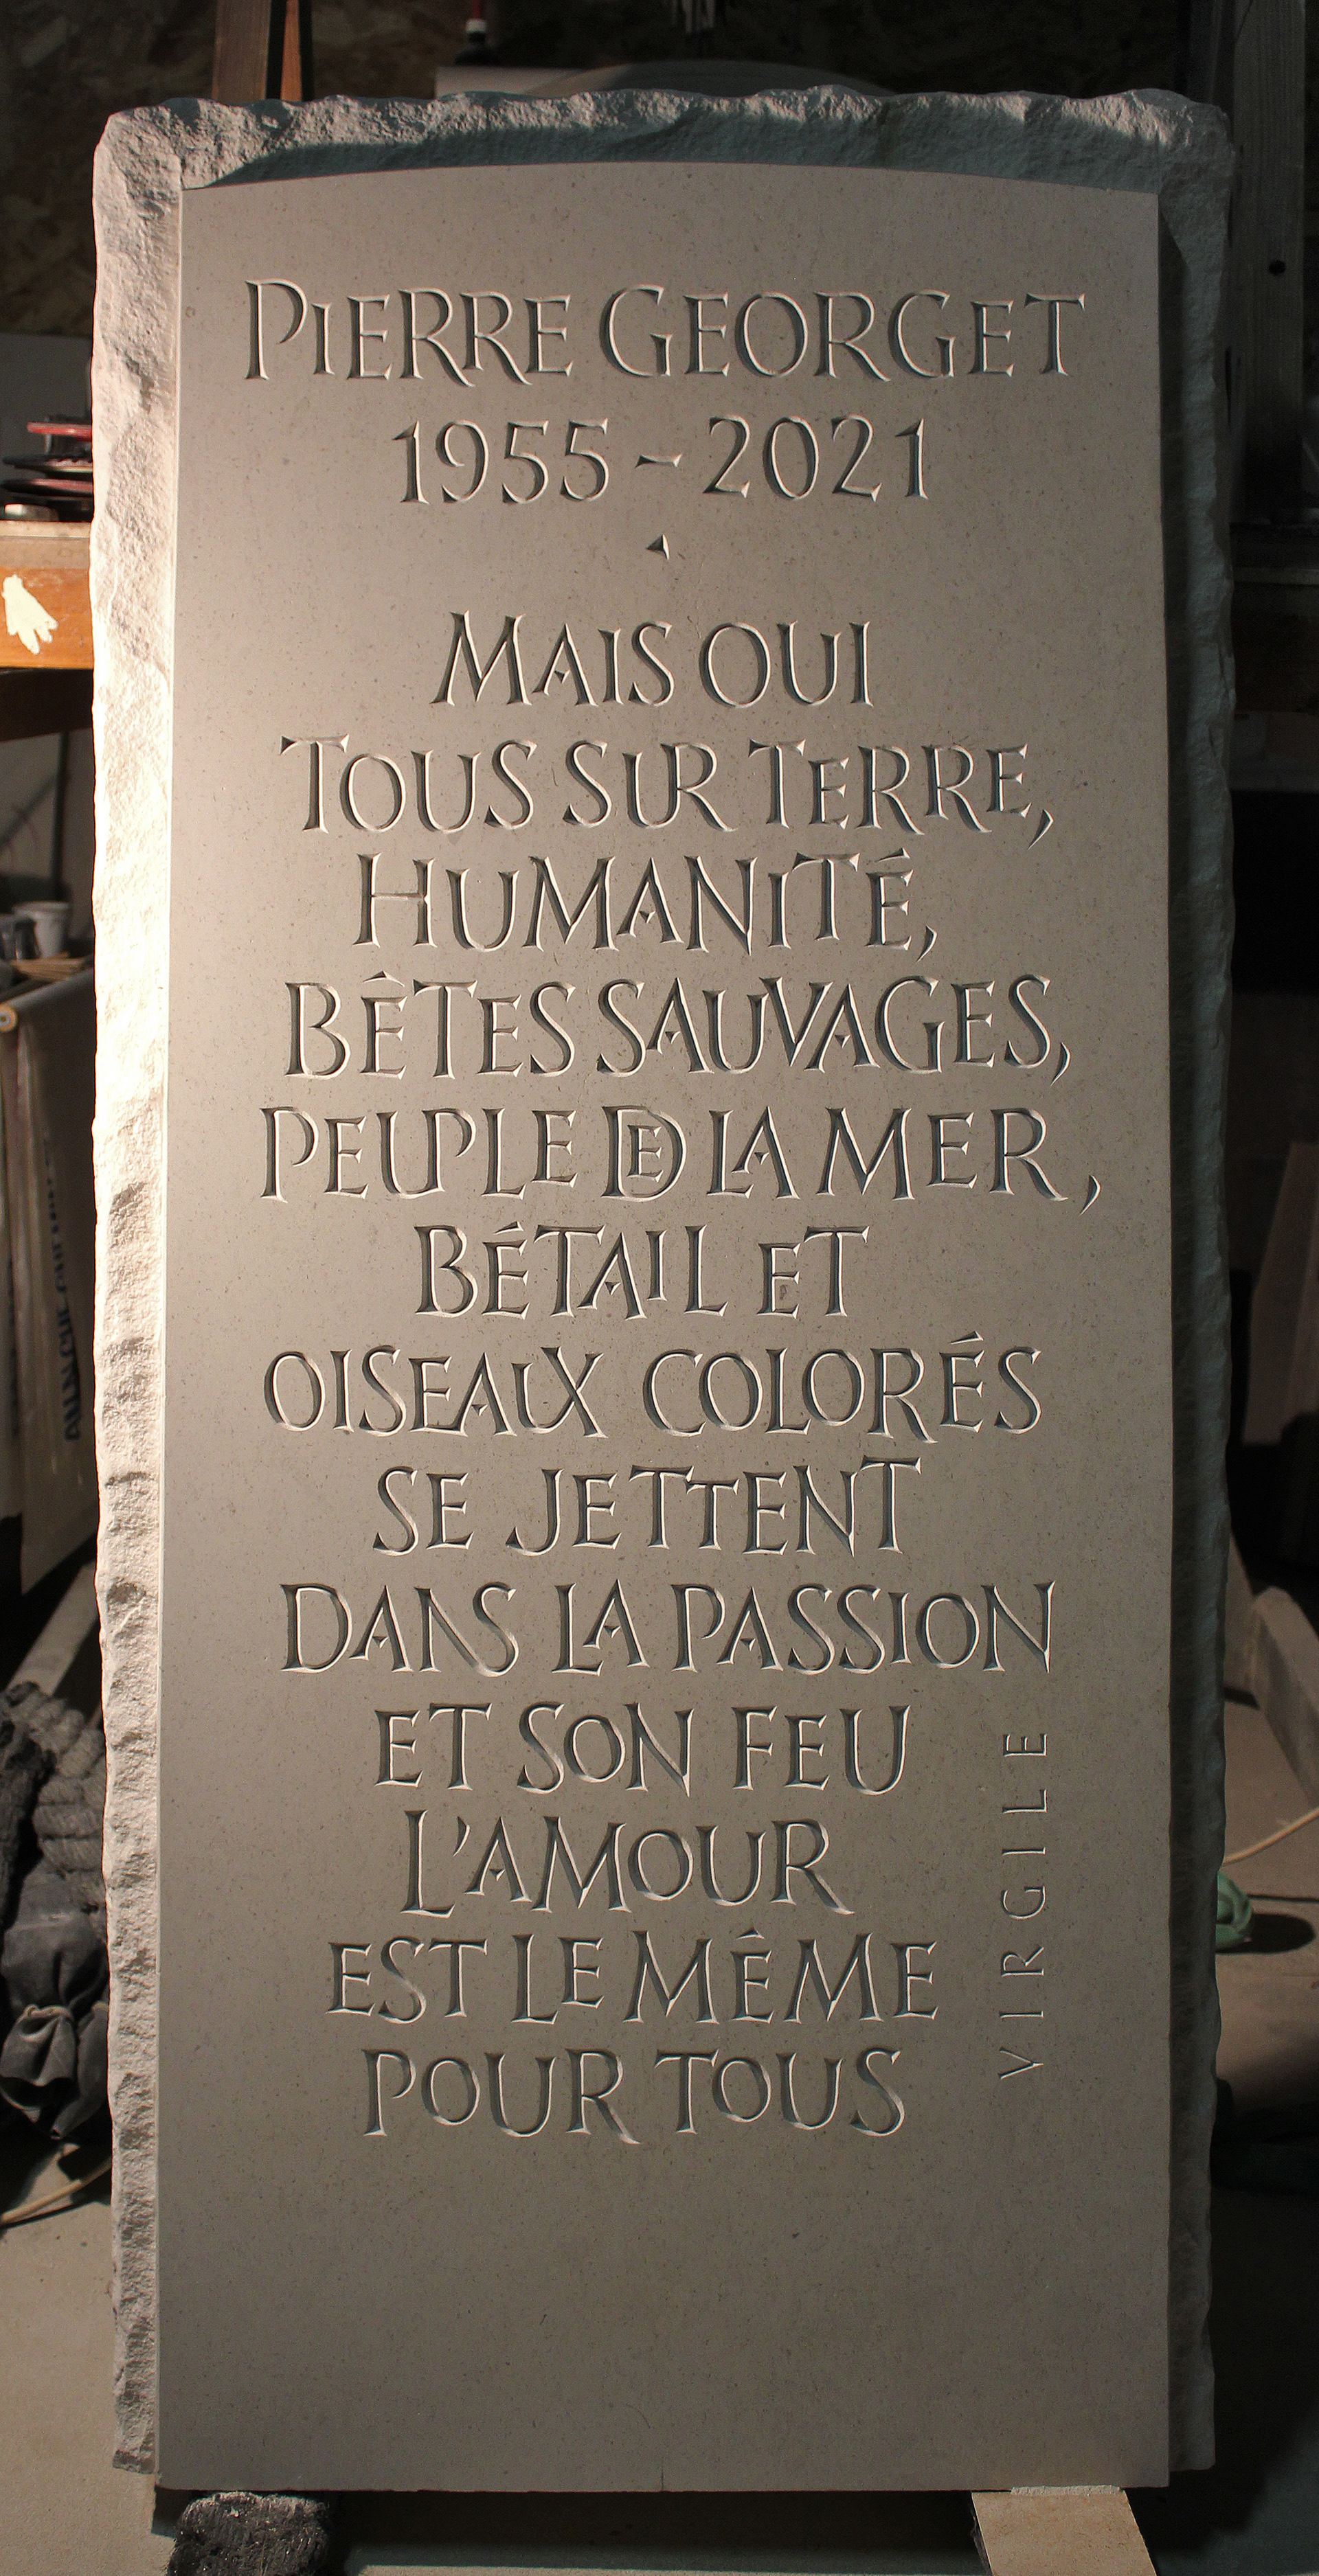 PIERRE GEORGET
1955 - 2021
MAIS OUI
TOUS SUR TERRE,
HUMANITÉ,
BÊTES SAUVAGES,
PEUPLE DE LA MER,
BÉTAIL ET
OISEAUX COLORÉS
SE JETTENT
DANS LA PASSION
ET SON FEU
L'AMOUR
EST LE MÊME
POUR TOUS
VIRGILE